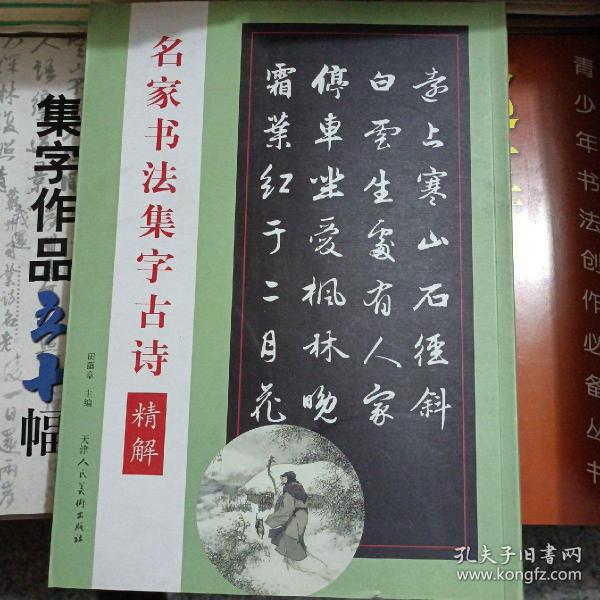 名家书法集字古诗
精解
田蕴章 主编
天津人民美术出版社
远上寒山石径斜
白云生处有人家
停车坐爱枫林晚
霜叶红于二月花
集字作品五十幅
青少年书法创作必备丛书
孔夫子旧书网
www.kongfz.com